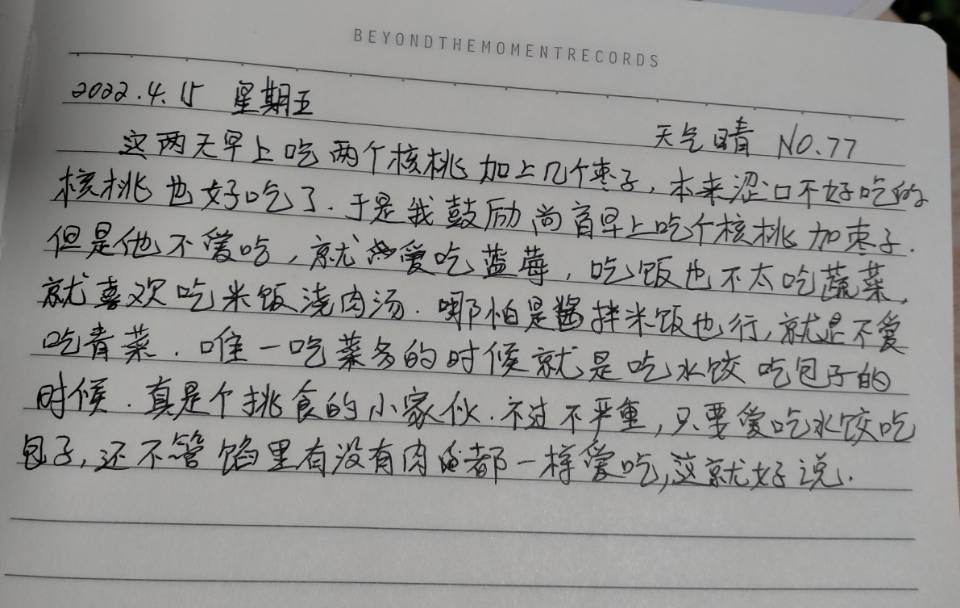 BEYONDTHEMOMENTRECORDS
2022.4.15 星期五
天气晴 NO.77
这两天早上吃两个核桃加上几个枣子,本来涩口不好吃的
核桃也好吃了.于是我鼓励尚首早上吃个核桃加枣子.
但是他不爱吃,就爱吃蓝莓,吃饭也不太吃蔬菜,
就喜欢吃米饭浇肉汤.哪怕是酱拌米饭也行,就是不爱
吃青菜.唯一吃菜多的时候就是吃水饺吃包子的
时候.真是个挑食的小家伙.不过不严重,只要爱吃水饺吃
包子,还不管馅里有没有肉都一样爱吃,这就好说.